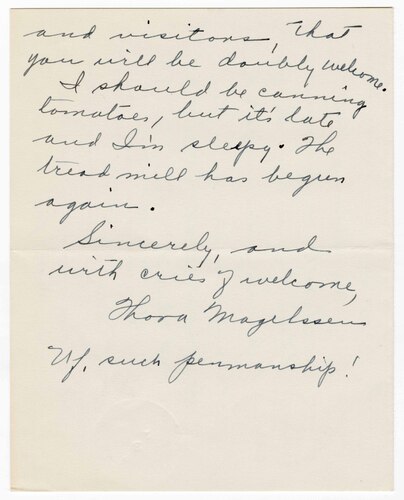 and visitors, that
you will be doubly welcome.
I should be canning
tomatoes, but it's late
and I'm sleepy. The
tread mill has begun
again.
Sincerely, and
with cries of welcome,
Thora Magelssen
Uf, such penmanship!